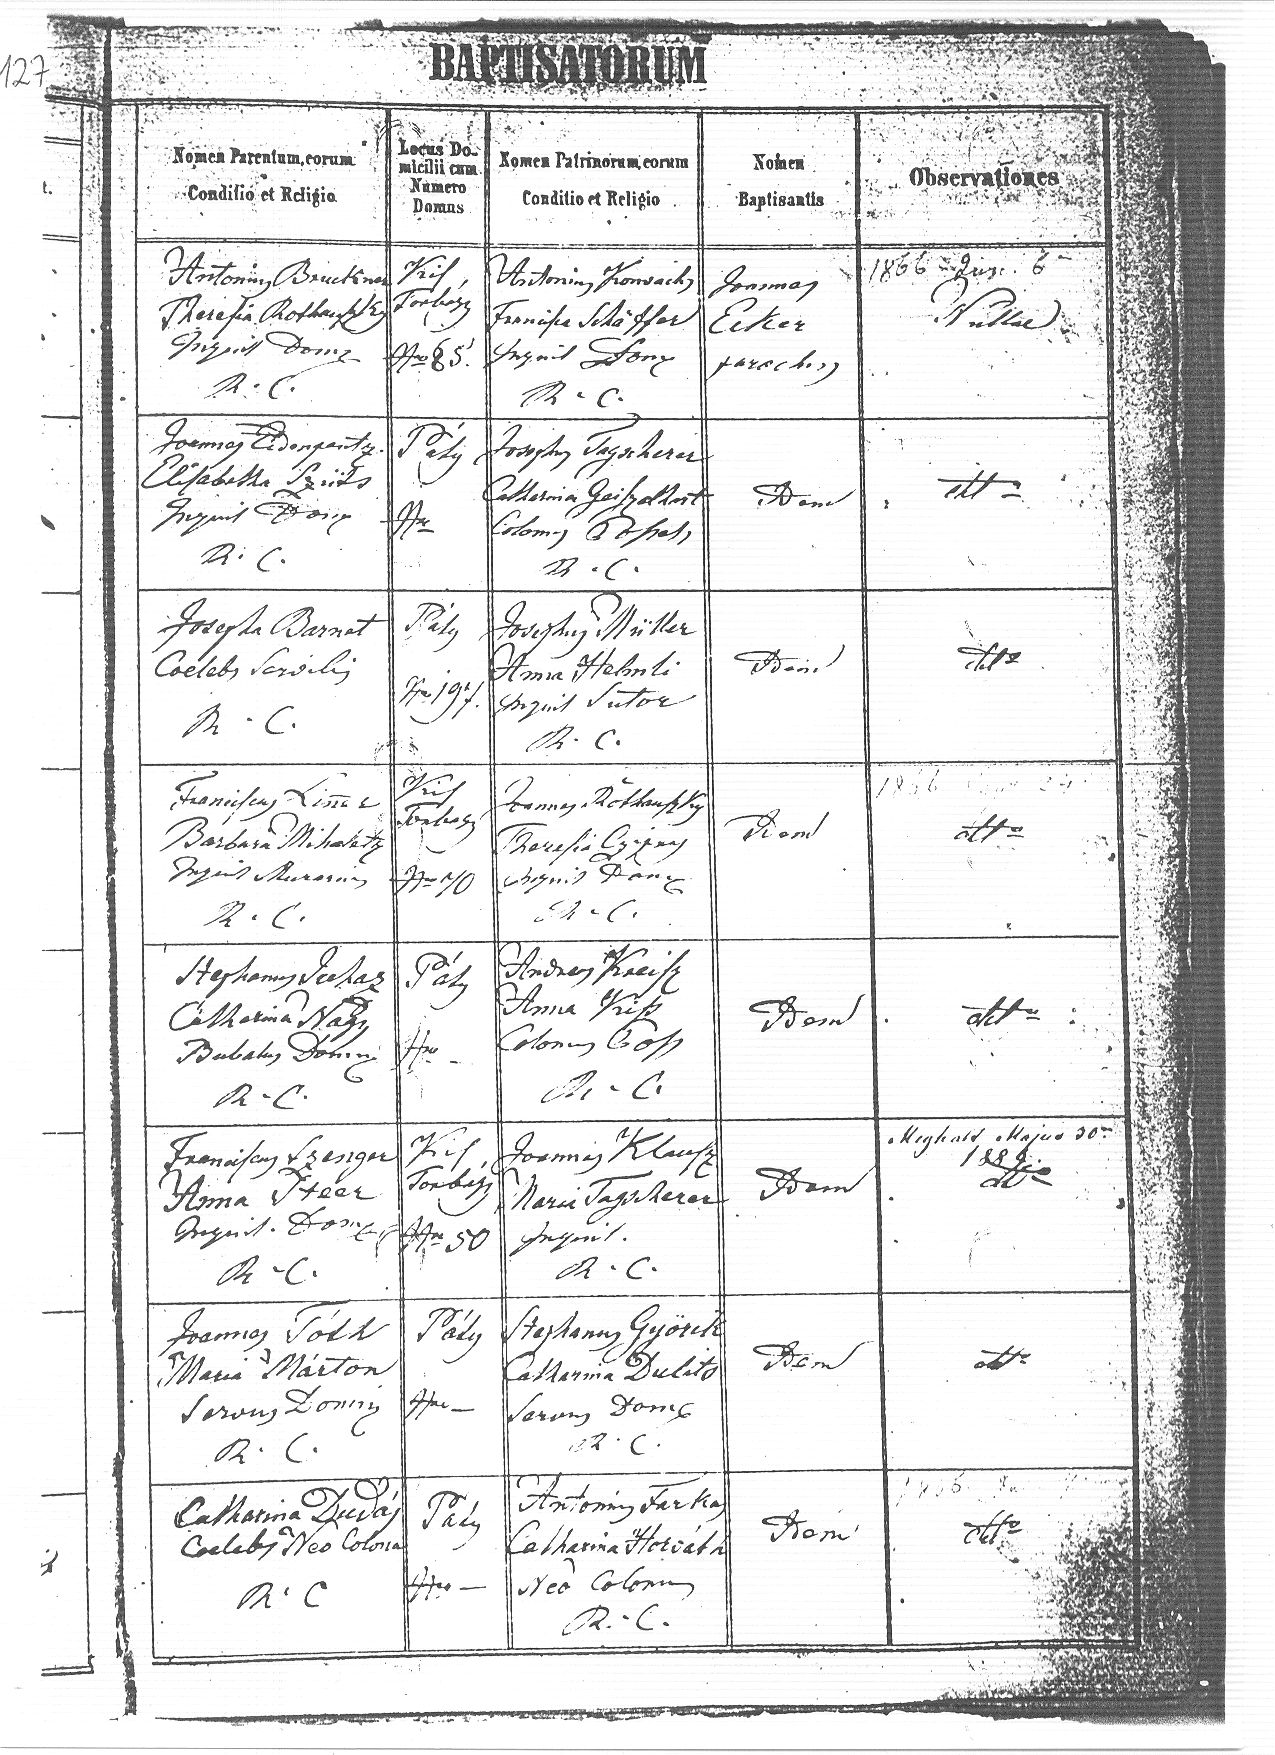 127
BAPTISATORUM
Nomen Parentum, eorum
Conditio et Religio
Locus Do-
micilii cum
Numero
Domus
Nomen Patrinorum, eorum
Conditio et Religio
Nomen
Baptisantis
Observationes
Antonius Bruckner
Theresia Rothaufzky
Inquil Domz
R. C.
Kis
Torbágy
Nro 85.
Antonius
Francisca Schäffer
Inquil Domz
R. C.
Joannes
Ecker
parochus
1866 Jun. 6
Nullae
Joannes
Elisabetha Szüts
Inquil Domz
R. C.
Páty
Nro
Josephus Tagscherer
Catharina
Colonus
R. C.
Idem
dtto
Josepha Barnat
Coelebs Servilis
R. C.
Páty
Nro 197.
Josephus Müller
Anna Helmli
Inquil Sutor
R. C.
Idem
dtto
Franciscus
Barbara Mihaletz
Inquil Murarius
R. C.
Kis
Torbágy
Nro 70
Joannes Rothaufzky
Theresia
Inquil Domz
R. C.
Idem
1866
dtto
Stephanus Juhaz
Catharina Nagy
Bubulcus Domin
R. C.
Páty
Nro -
Andreas Kreisz
Anna Kiss
Colonus
R. C.
Idem
dtto
Franciscus Szenger
Anna Steer
Inquil. Domz
R. C.
Kis
Torbágy
Nro 50
Joannes Klausz
Maria Tagscherer
Inquil.
R. C.
Idem
Meghalt Majus 30
dtto
Joannes Tóth
Maria Márton
Servus Domin
R. C.
Páty
Nro —
Stephanus Györik
Catharina Dulits
Servus Domz
R. C.
Idem
dtto
Catharina Dudás
Coelebs Neo Colona
R. C
Páty
Nro —
Antonius Farkas
Catharina Horváth
Neo Colonus
R. C.
Idem
1866
dtto